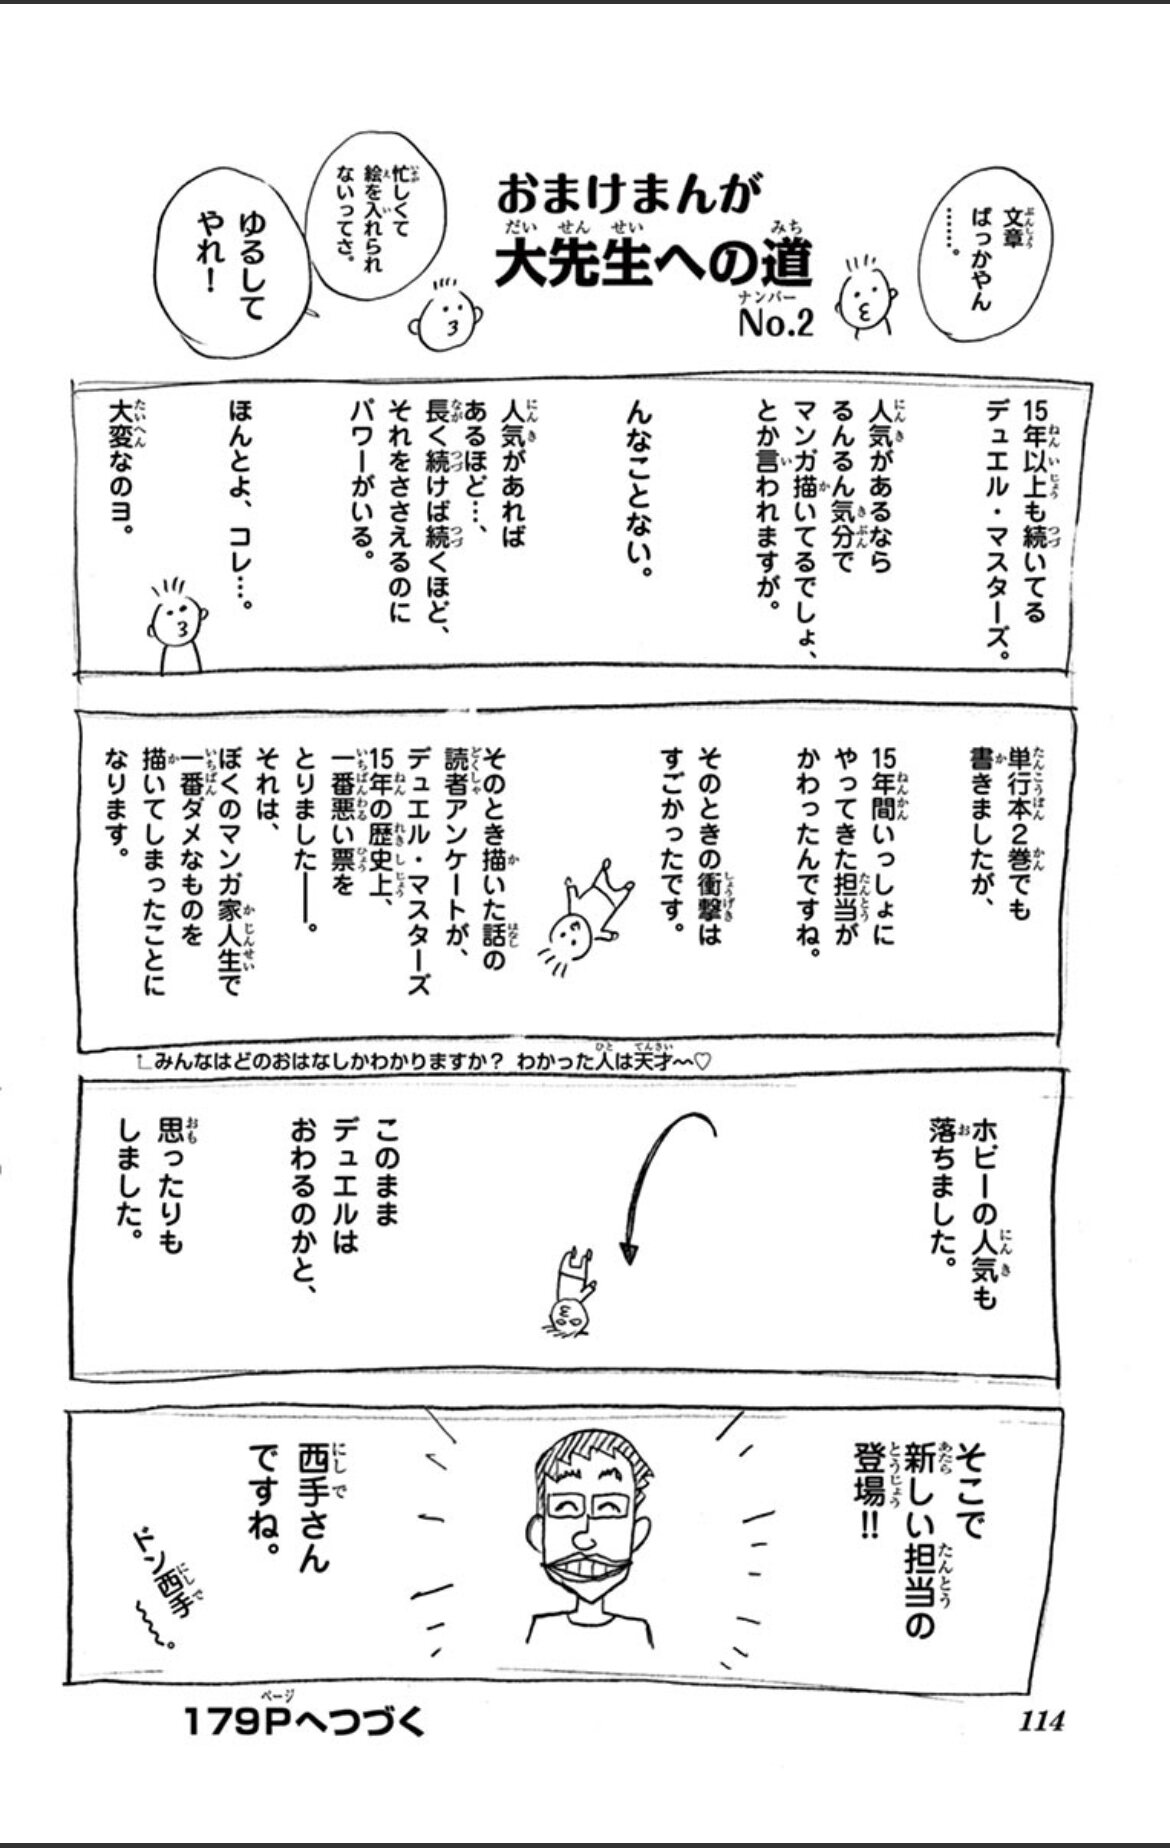 文章
ばっかやん
……。
おまけまんが
大先生への道
No.2
忙しくて
絵を入れられ
ないってさ。
ゆるして
やれ！
15年以上も続いてる
デュエル・マスターズ。
人気があるなら
るんるん気分で
マンガ描いてるでしょ、
とか言われますが。
んなことない。
人気があれば
あるほど…、
長く続けば続くほど、
それをささえるのに
パワーがいる。
ほんとよ、コレ…。
大変なのヨ。
単行本2巻でも
書きましたが、
15年間いっしょに
やってきた担当が
かわったんですね。
そのときの衝撃は
すごかったです。
そのとき描いた話の
読者アンケートが、
デュエル・マスターズ
15年の歴史上、
一番悪い票を
とりました――。
それは、
ぼくのマンガ家人生で
一番ダメなものを
描いてしまったことに
なります。
みんなはどのおはなしかわかりますか？ わかった人は天才〜♡
ホビーの人気も
落ちました。
このまま
デュエルは
おわるのかと、
思ったりも
しました。
そこで
新しい担当の
登場!!
西手さん
ですね。
ドン西手〜〜。
179Pへつづく
114